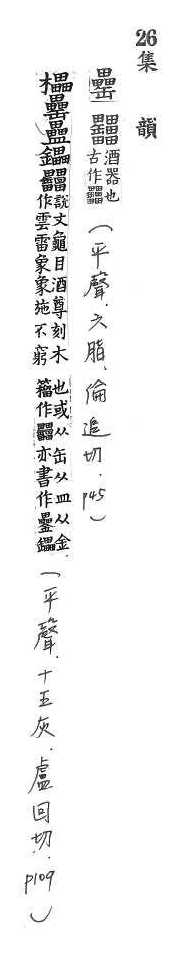 26集韻
罍 酒器也古作 (平聲.六脂.倫追切.p45)
櫑罍𥃇鑘 說文龜目酒尊刻木作雲雷象象施不窮也或从缶从皿从金籀作 亦書作 (平聲.十五灰.盧回切.p109)